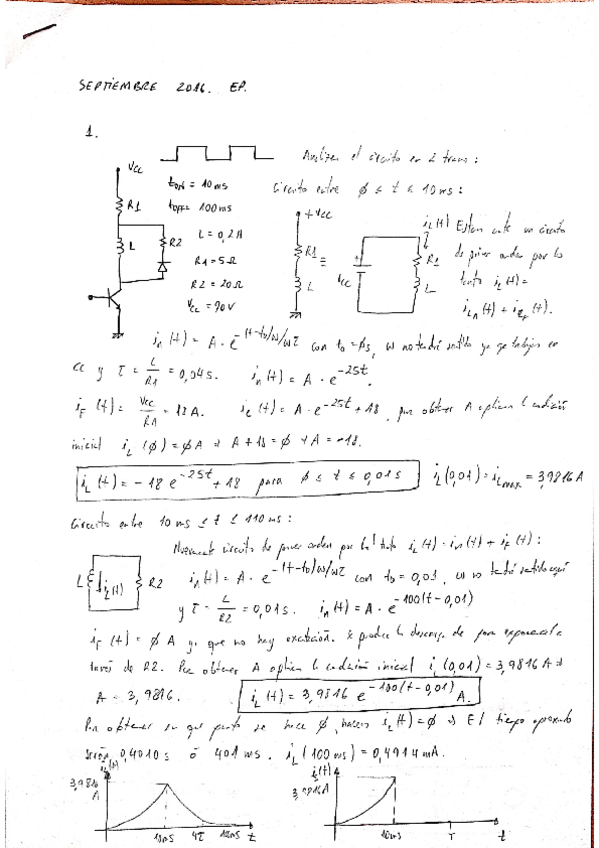 SEPTIEMBRE 2016. EP.
1.
Analizar el circuito en 2 tramos:
Vcc
tON = 10ms
tOFF = 100ms
Circuito entre ∅ ≤ t ≤ 10ms:
R1
L
R2
L = 0,2H
R1 = 5Ω
R2 = 20Ω
Vcc = 90V
+Vcc
R1
L
≡
Vcc
R1
L
iL(t)
Estamos ante un circuito
de primer orden por lo
tanto iL(t) =
con t0 = ∅s, ω no tendrá sentido ya que trabajas en
CC y τ = L/R1 = 0,04s. in(t) = A · e^-25t.
iF(t) = Vcc/R1 = 18A. iL(t) = A · e^-25t + 18, para obtener A aplican la condición
inicial iL(∅) = ∅A → A + 18 = ∅ → A = -18.
iL(t) = -18 e^-25t + 18 para ∅ ≤ t ≤ 0,01s iL(0,01) = iLmax = 3,9816A
Circuito entre 10ms ≤ t ≤ 110ms:
Nuevamente circuito de primer orden por lo tanto iL(t) = in(t) + iF(t):
L
iL(t)
R2
in(t) = A · e^-(t-t0)ω/ωτ con t0 = 0,01, ω no tendrá sentido aquí
y τ = L/R2 = 0,01s. in(t) = A · e^-100(t-0,01)
iF(t) = ∅A ya que no hay excitación. Se produce la descarga de forma exponencial a
través de R2. Para obtener A aplican la condición inicial iL(0,01) = 3,9816A →
A = 3,9816. iL(t) = 3,9816 e^-100(t-0,01) A.
Para obtener en que punto se hace ∅, iL(t) = ∅ → El tiempo aproximado
0,4010s ó 401ms. iL(100ms) = 0,4914mA.
iL(t)
3,9816
A
10ms
4τ
t
iL(t)
3,9816A
10ms
T
t